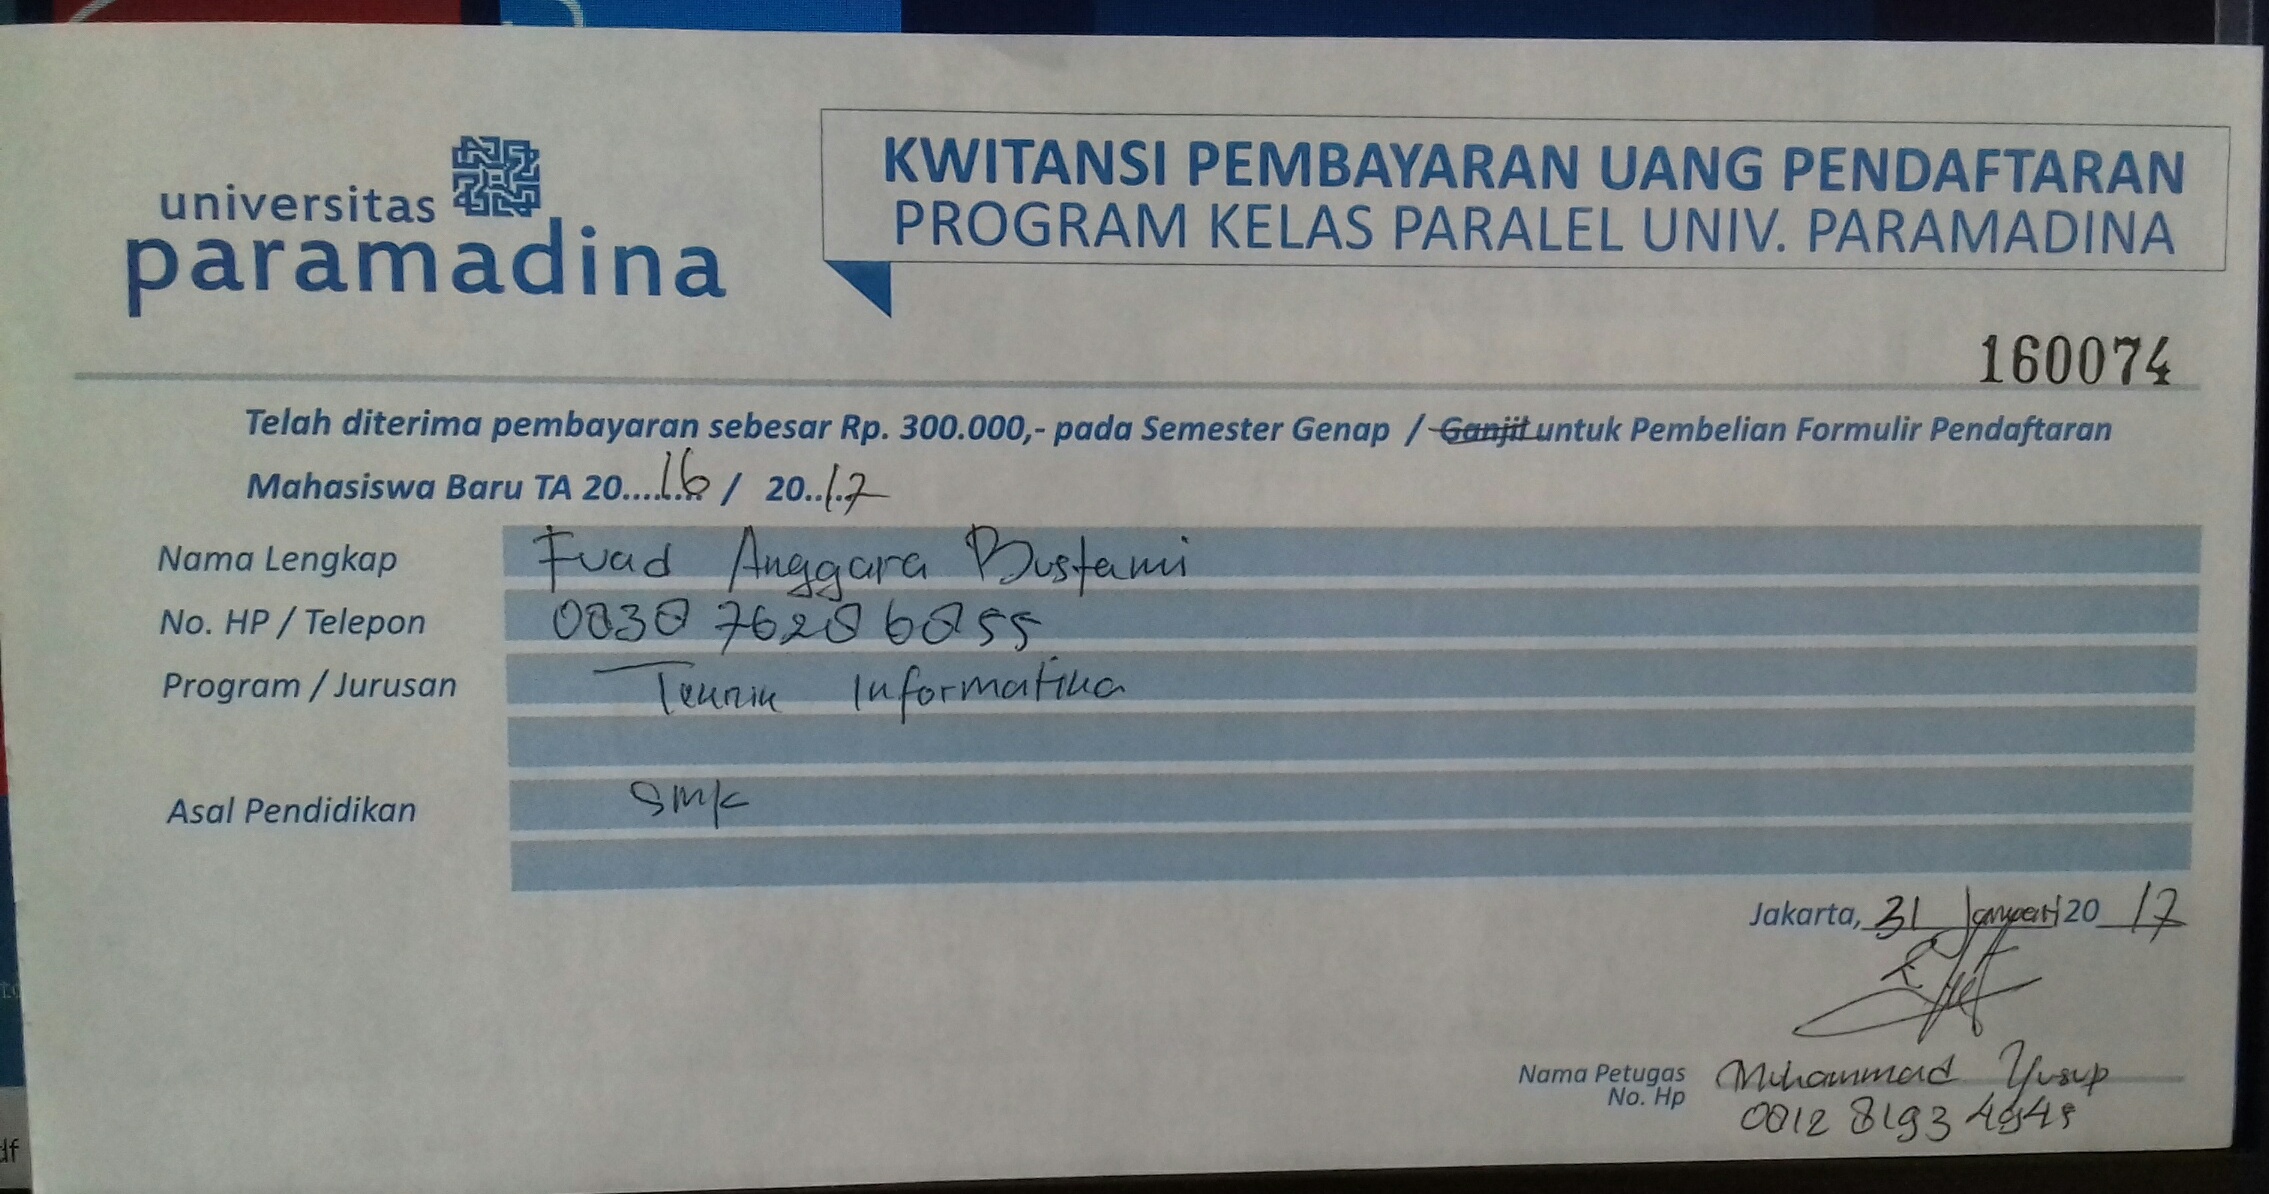 universitas
paramadina
KWITANSI PEMBAYARAN UANG PENDAFTARAN
PROGRAM KELAS PARALEL UNIV. PARAMADINA
160074
Telah diterima pembayaran sebesar Rp. 300.000,- pada Semester Genap / Ganjil untuk Pembelian Formulir Pendaftaran
Mahasiswa Baru TA 20....16 / 20..17
Nama Lengkap Fuad Anggara Bustami
No. HP / Telepon
Program / Jurusan Teknik Informatika
Asal Pendidikan SMK
Jakarta, 31 Januari 20 17
Nama Petugas Muhammad Yusup
No. Hp
df